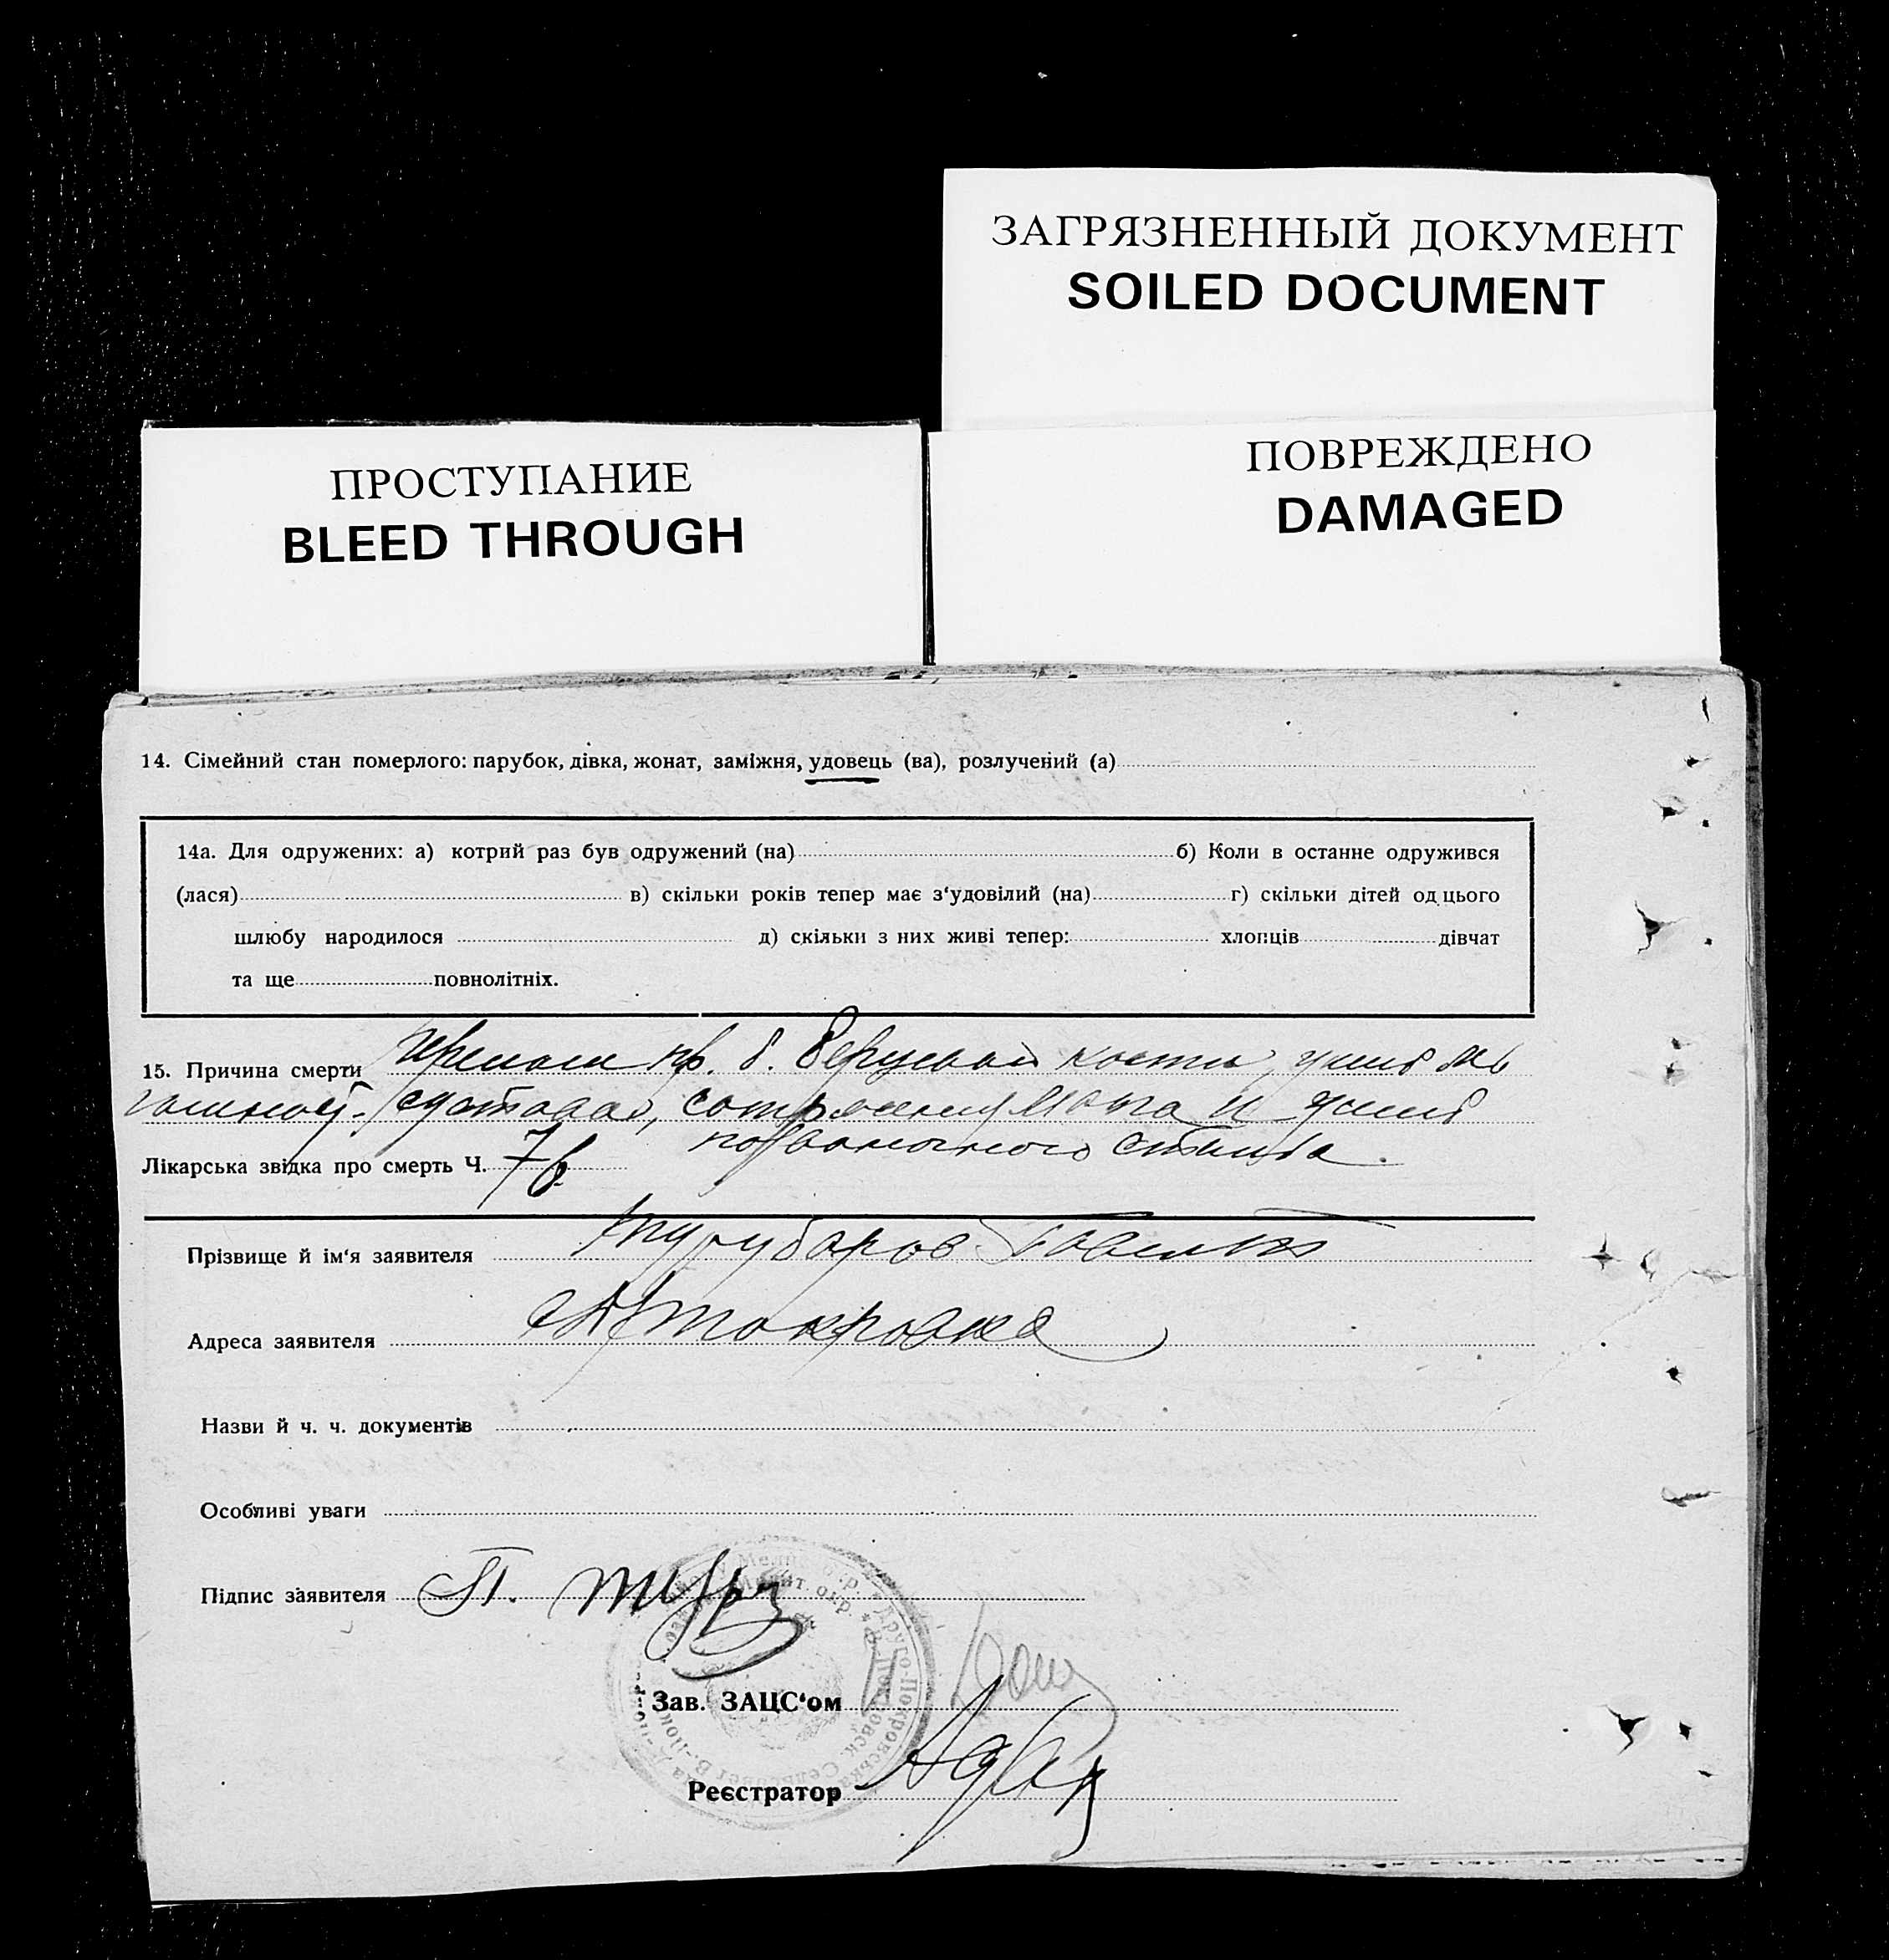 ЗАГРЯЗНЕННЫЙ ДОКУМЕНТ
SOILED DOCUMENT
ПРОСТУПАНИЕ
BLEED THROUGH
ПОВРЕЖДЕНО
DAMAGED
14. Сімейний стан померлого: парубок, дівка, жонат, заміжня, удовець (ва), розлучений (а)
14а. Для одружених: а) котрий раз був одружений (на) б) Коли в останне одружився
(лася) в) скільки років тепер має з‘удовілий (на) г) скільки дітей од цього
шлюбу народилося д) скільки з них живі тепер: хлопців дівчат
та ще повнолітніх.
15. Причина смерти перелом пр. б. берцовой кости, ушиб
суставов, сотрясения мозга и ушиб
позвоночного столба.
Лікарська звідка про смерть Ч.
Прізвище й ім‘я заявителя
Адреса заявителя
Назви й ч. ч. документів
Особливі уваги
Підпис заявителя П.
Зав. ЗАЦС‘ом
Реєстратор